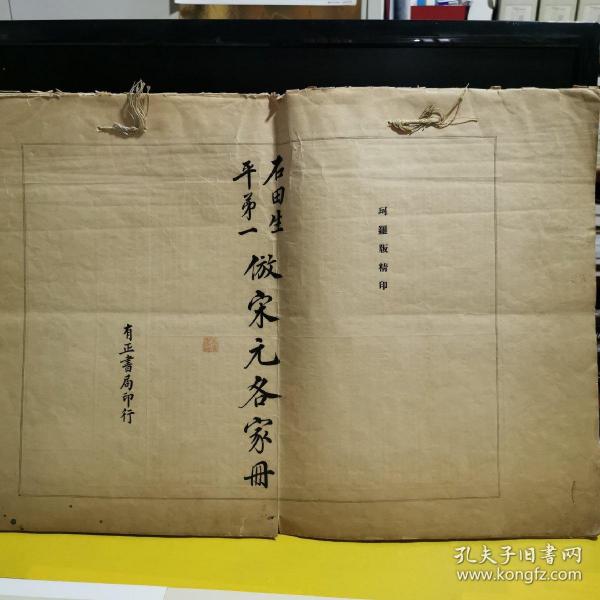 珂羅版精印
石田生
平弟一
倣宋元各家冊
有正書局印行
孔夫子旧书网
www.kongfz.com